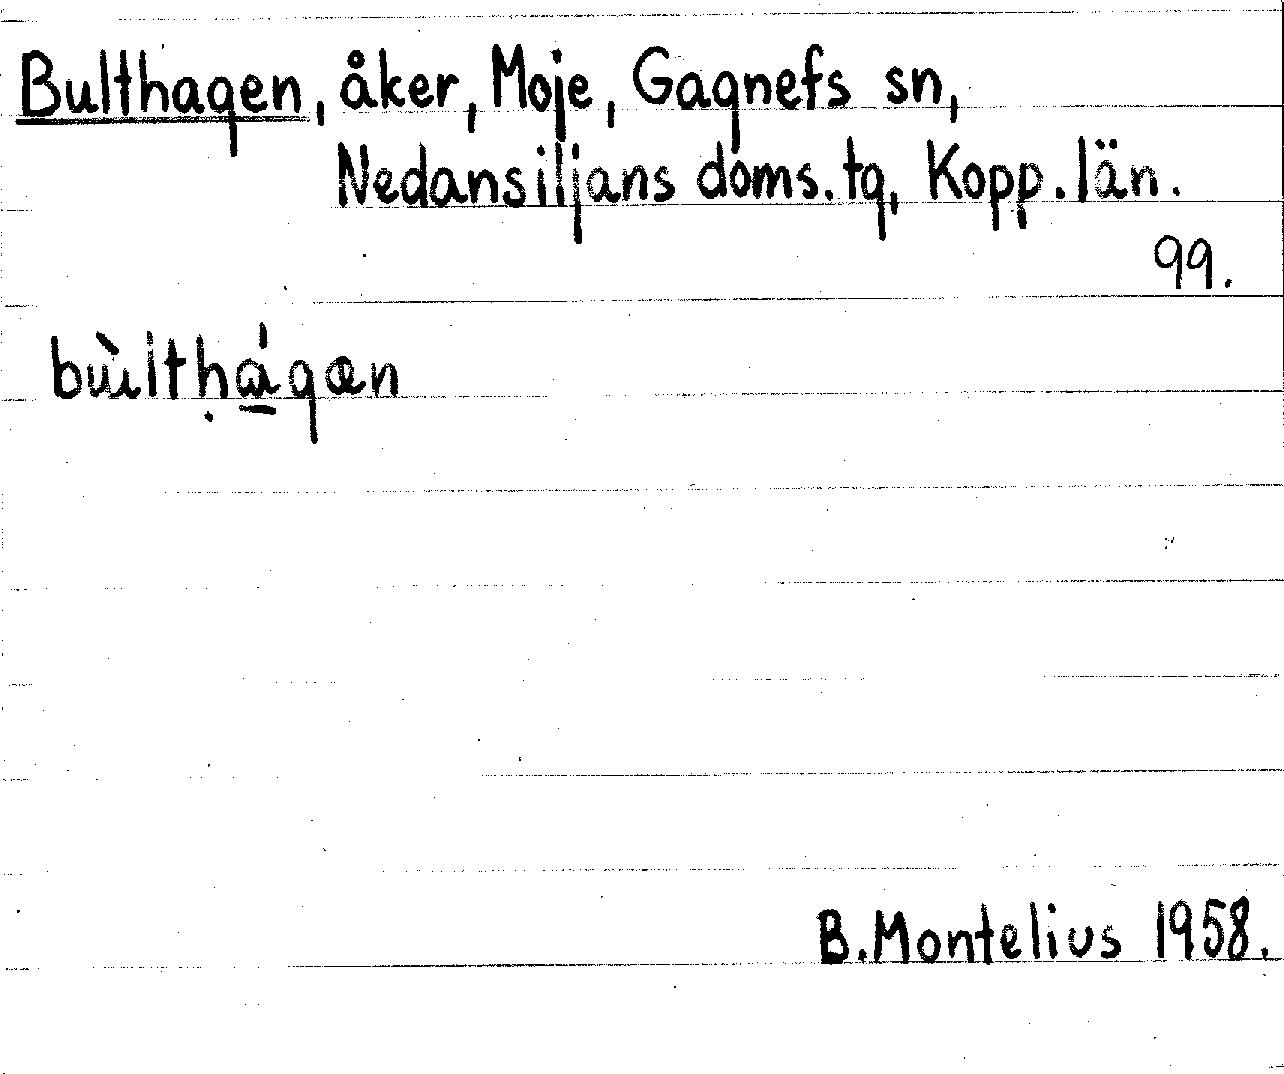 Bulthagen, åker, Moje, Gagnefs sn,
Nedansiljans doms.tg, Kopp.län.
99.
bùltḥá̱gœn
B.Montelius 1958.